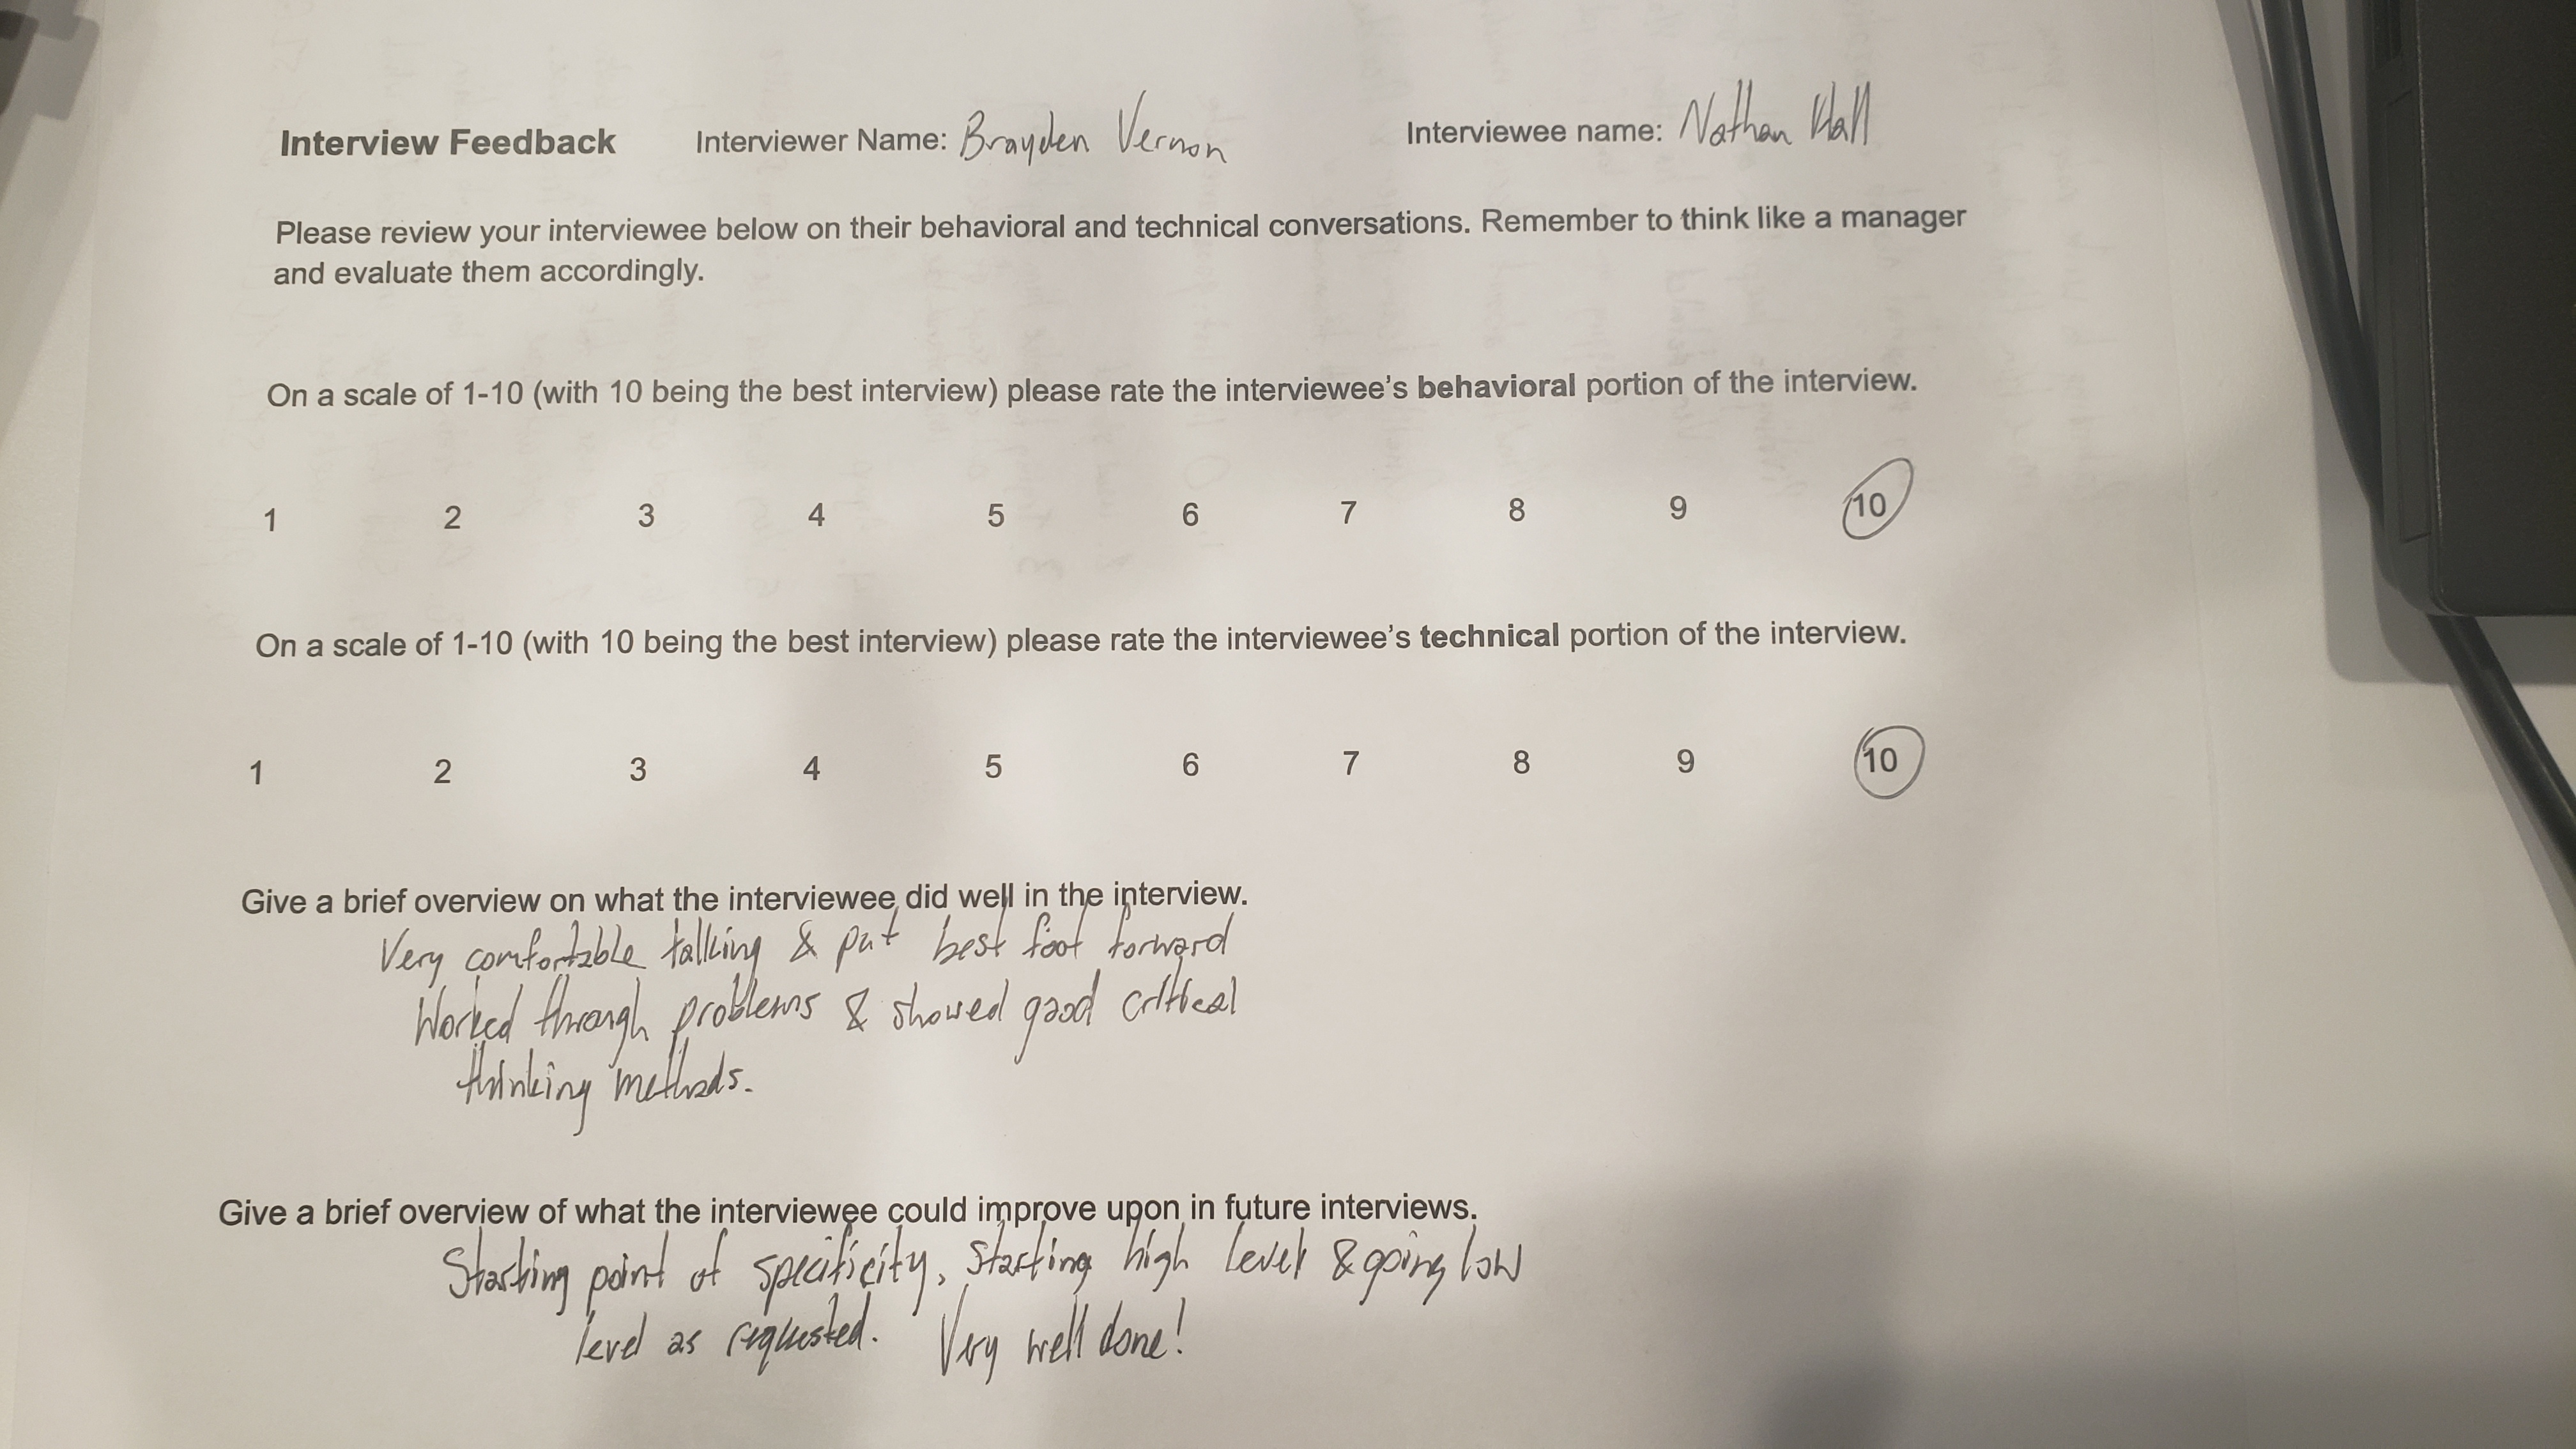 Interview Feedback Interviewer Name: Brayden Vernon Interviewee name: Nathan Hall
Please review your interviewee below on their behavioral and technical conversations. Remember to think like a manager
and evaluate them accordingly.
On a scale of 1-10 (with 10 being the best interview) please rate the interviewee's behavioral portion of the interview.
1 2 3 4 5 6 7 8 9 10
On a scale of 1-10 (with 10 being the best interview) please rate the interviewee's technical portion of the interview.
1 2 3 4 5 6 7 8 9 10
Give a brief overview on what the interviewee did well in the interview.
Very comfortable talking & put best foot forward
Worked through problems & showed good critical
thinking methods.
Give a brief overview of what the interviewee could improve upon in future interviews.
Starting point of specificity, starting high level & going low
level as requested. Very well done!